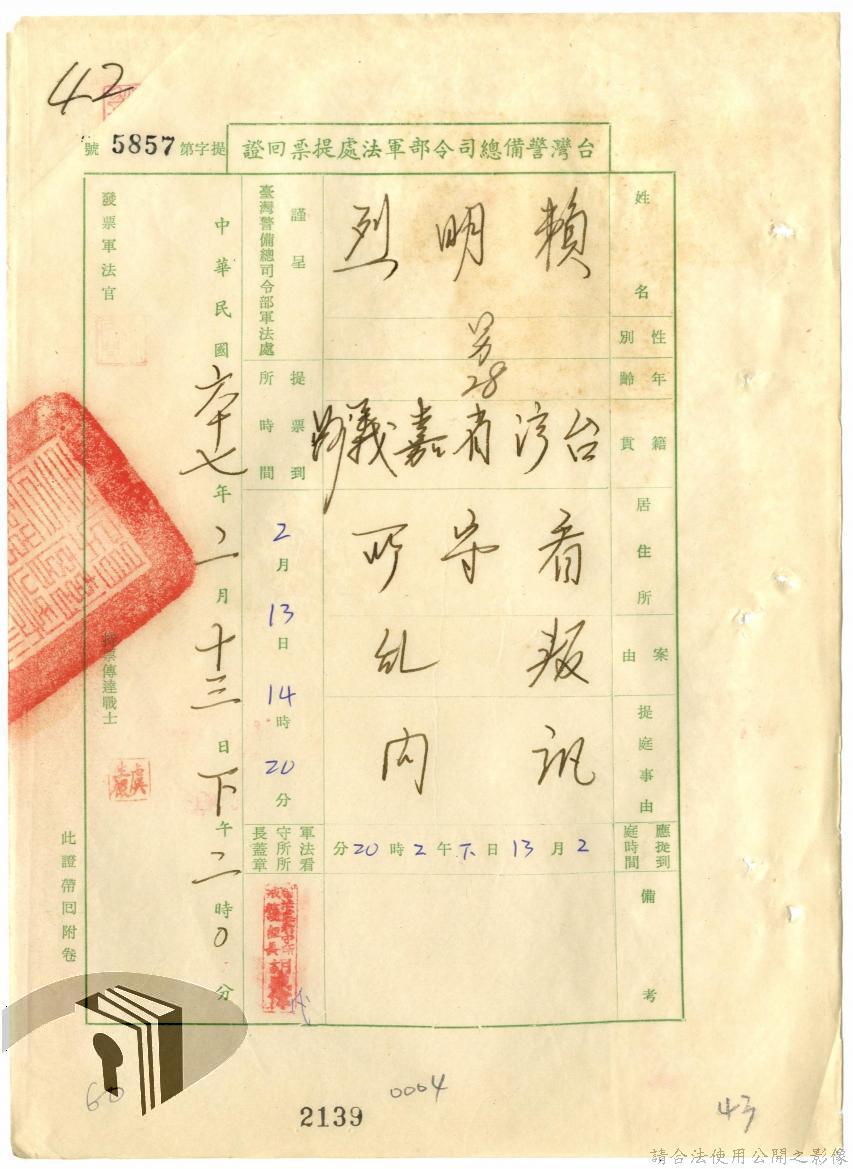 42
台灣警備總司令部軍法處提票回證
提字第 5857 號
姓名
賴明烈
性別
男
年齡
28
籍貫
台湾省嘉義縣
居住所
看守所
案由
叛乱
提庭事由
訊问
應提到庭時間
2月13日下午2時20分
備考
謹呈
臺灣警備總司令部軍法處
提票到所時間
2月13日14時20分
軍法看守所所長蓋章
中華民國六十七年二月十三日下午二時0分
發票軍法官
票傳達戰士
此證帶回附卷
60
0004
2139
43
請合法使用公開之影像